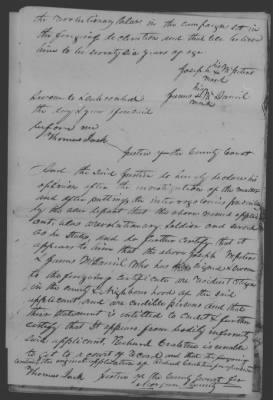 the Revolutionary War in the campaigns set in
the foregoing declaration and that we believe
him to be seventy six years of age
Joseph his Mc Peters
mark
his
James Mc Daniel
mark
Sworn to & subscribed
the day & year aforesaid
before me
Thomas Lack
Justice of the County Court
And the said Justice do hereby declare his
opinion after the investigation of the matter
and after putting the interrogatories prescribed
by the war department that the above named applic
ant, was a revolutionary soldier and served
as he states, and he further certify that it
appears to him that the above Joseph Mc Peters
& James McDaniel Who has signed & sworn
to the foregoing Certificate are resident Citizens
in the county & neighborhood of the said
applicant and are credible persons and that
their statement is entitled to credit & further
certify that It appears from bodily infirmity
said applicant, Richard is unable
to get to a court of Record and that the foregoing
contains the original application of Richard for a pension
Thomas Lack Justice of the County Court for
Morgan County